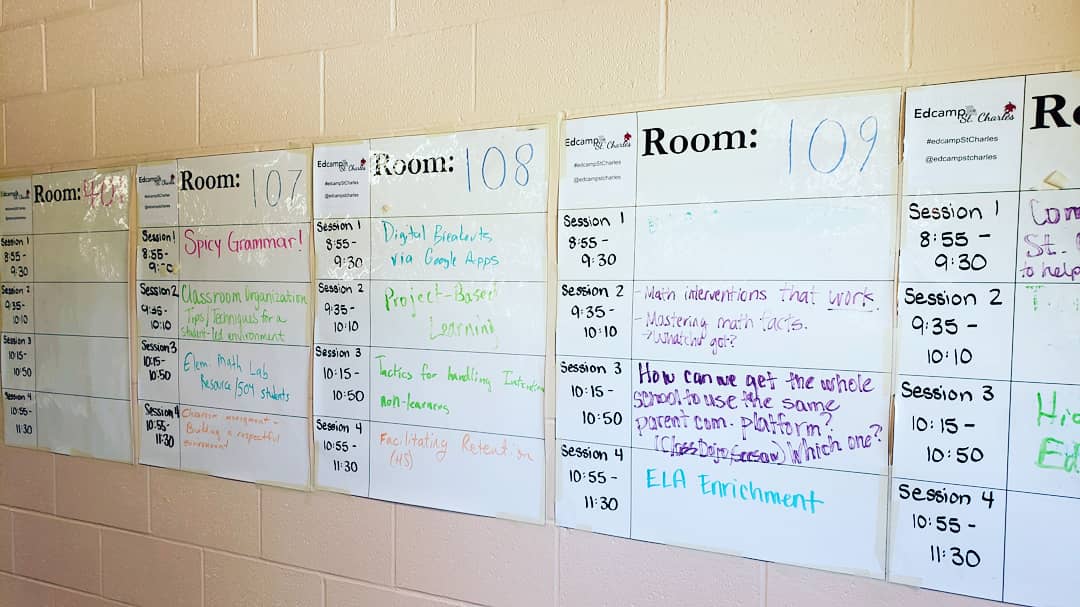 Edcamp
St. Charles
Room:
Session 1
8:55 -
9:30
Session 2
9:35 -
10:10
Session 3
10:15 -
10:50
Session 4
10:55 -
11:30
Edcamp
St. Charles
#edcampStCharles
@edcampstcharles
Room: 107
Session 1
8:55 -
Spicy Grammar!
Session 2
9:35 -
10:10
Classroom Organization
Tips, Techniques for a
student-led environment
Session 3
10:15 -
10:50
Elem. Math Lab
Resource/504 students
Session 4
10:55 -
11:30
Building a respectful
Edcamp
St. Charles
#edcampStCharles
@edcampstcharles
Room: 108
Session 1
8:55 -
9:30
Digital Breakouts
via Google Apps
Session 2
9:35 -
10:10
Project-Based
Learning
Session 3
10:15 -
10:50
Tactics for handling
non-learners
Session 4
10:55 -
11:30
Facilitating Retention
(HS)
Edcamp
St. Charles
#edcampStCharles
@edcampstcharles
Room: 109
Session 1
8:55 -
9:30
Session 2
9:35 -
10:10
- Math interventions that work.
- Mastering math facts.
→ Whatcha got?
Session 3
10:15 -
10:50
How can we get the whole
school to use the same
parent com. platform?
(Class Dojo, Seesaw) Which one?
Session 4
10:55 -
11:30
ELA Enrichment
Edcamp
St. Charles
#edcampStCharles
@edcampstcharles
Session 1
8:55 -
9:30
Com
St.
to help
Session 2
9:35 -
10:10
Session 3
10:15 -
10:50
Ed
Session 4
10:55 -
11:30